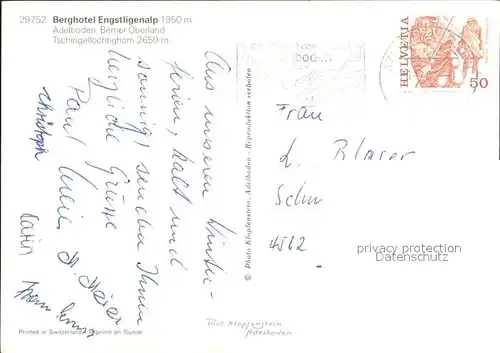 29752 Berghotel Engstligenalp 1950 m
Adelboden, Berner Oberland
Tschingellochtighorn 2659 m
Aus unseren Winter-
ferien, kalt und
sonnig, senden Ihnen
herzliche Grüsse
Paul
Christoph
Karin
© Photo Klopfenstein, Adelboden - Reproduktion verboten
HELVETIA
50
Frau
L. Blaser
4562
privacy protection
VARIMEX GMBH
Phot. Klopfenstein,
Adelboden
Printed in Switzerland - Imprimé en Suisse